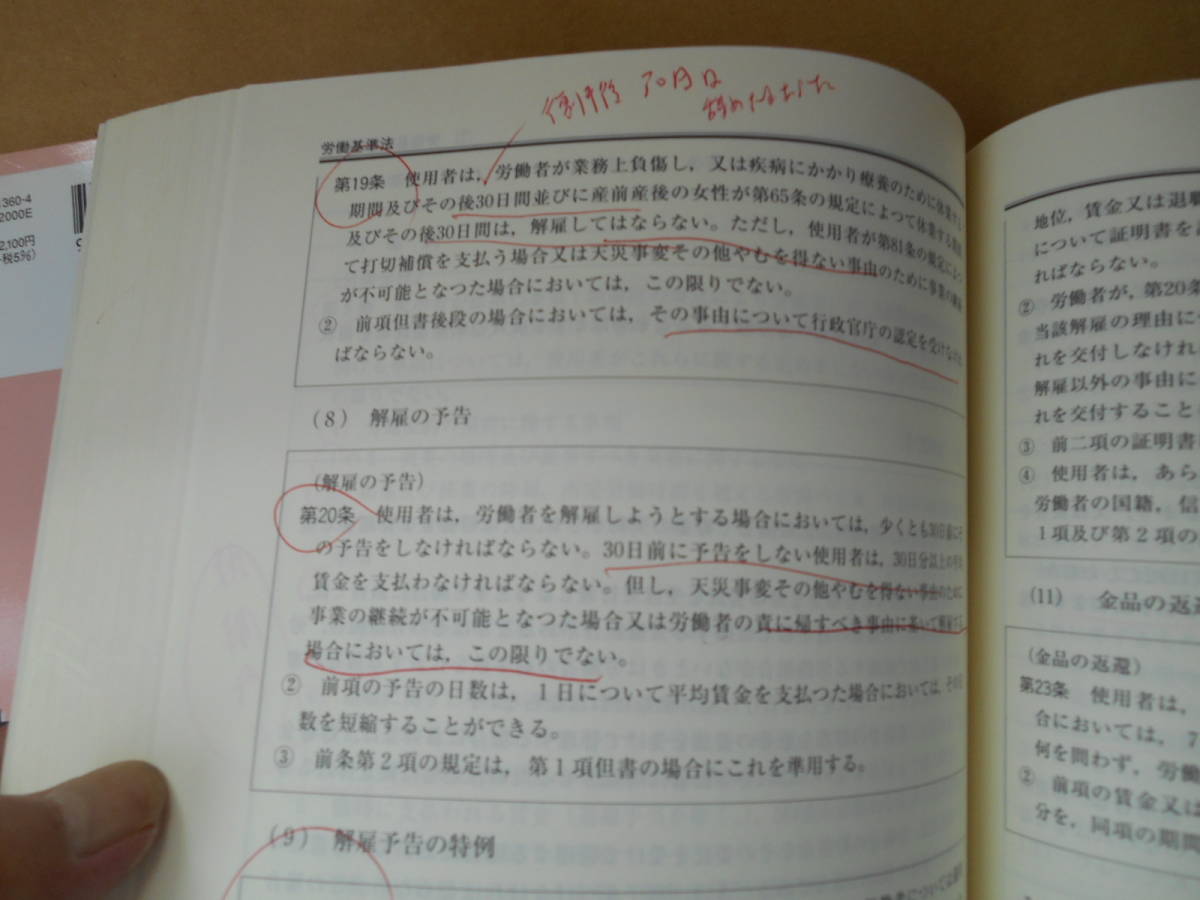 1360-4
2000E
2,100円
税5%)
30日は
労働基準法
第19条 使用者は，労働者が業務上負傷し，又は疾病にかかり療養のために休業する
期間及びその後30日間並びに産前産後の女性が第65条の規定によつて休業する期間
及びその後30日間は，解雇してはならない。ただし，使用者が第81条の規定によつ
て打切補償を支払う場合又は天災事変その他やむを得ない事由のために事業の継続
が不可能となつた場合においては，この限りでない。
② 前項但書後段の場合においては，その事由について行政官庁の認定を受けなけれ
ばならない。
(8) 解雇の予告
(解雇の予告)
第20条 使用者は，労働者を解雇しようとする場合においては，少くとも30日前にそ
の予告をしなければならない。30日前に予告をしない使用者は，30日分以上の平均
賃金を支払わなければならない。但し，天災事変その他やむを得ない事由のために
事業の継続が不可能となつた場合又は労働者の責に帰すべき事由に基いて解雇する
場合においては，この限りでない。
② 前項の予告の日数は，1日について平均賃金を支払つた場合においては，その日
数を短縮することができる。
③ 前条第2項の規定は，第1項但書の場合にこれを準用する。
(9) 解雇予告の特例
地位，賃金又は退職
について証明書を
ればならない。
② 労働者が，第20条
当該解雇の理由に
れを交付しなけれ
解雇以外の事由に
れを交付すること
③ 前二項の証明書
④ 使用者は，あら
労働者の国籍，信
1項及び第2項の
(11) 金品の返還
(金品の返還)
第23条 使用者は，
合においては，7
何を問わず，労働
② 前項の賃金又は
分を，同項の期間